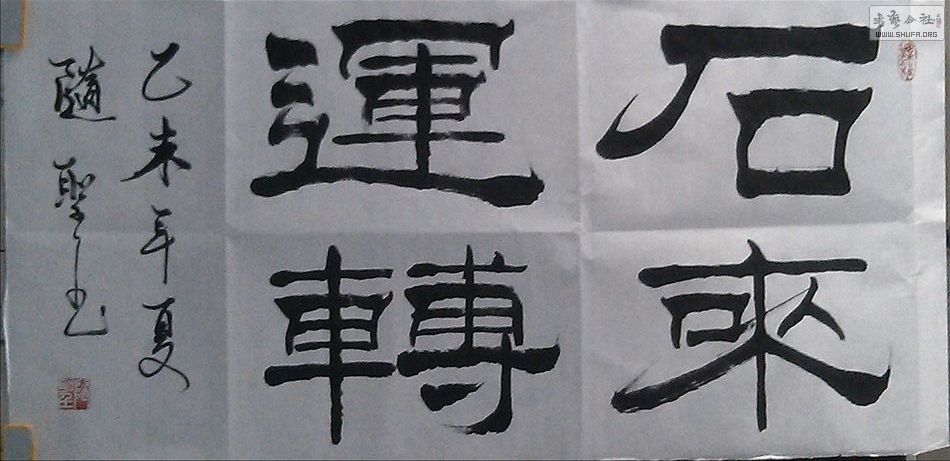 石来
運轉
乙未年夏
隨聖之书
書藝公社
WWW.SHUFA.ORG